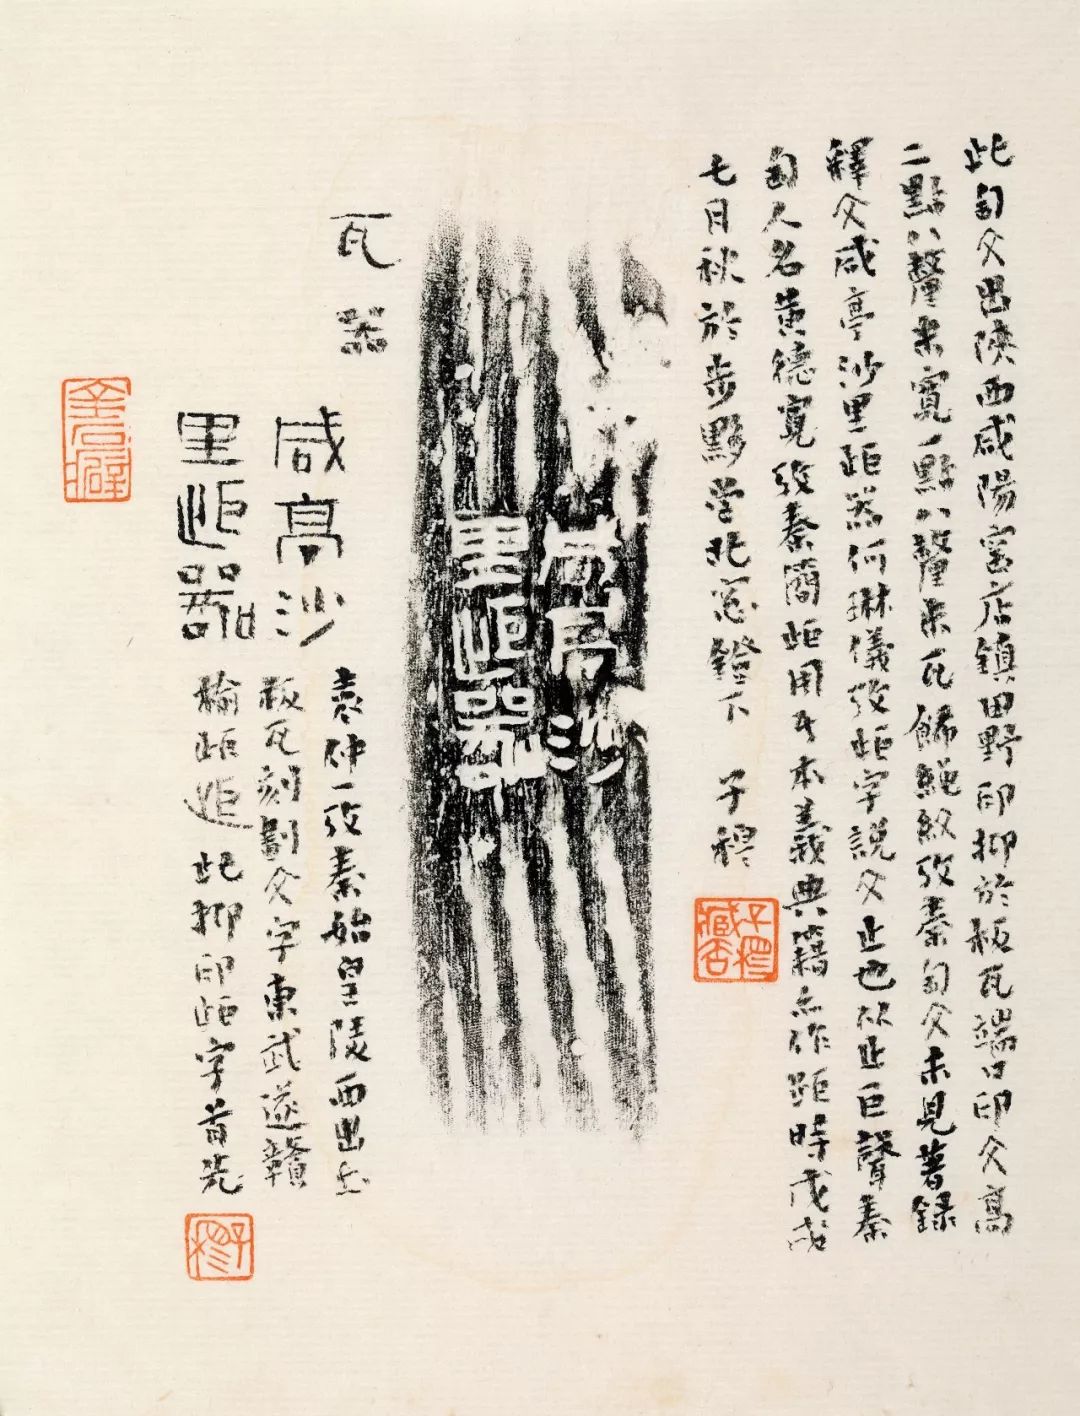 此匋文出陝西咸陽宮店鎮田野印抑於板瓦端口印文高
二點八釐米寬一點八釐米瓦飾繩紋攷秦匋文未見著錄
釋文咸亭沙里歫器何琳儀攷歫字說文止也从止巨聲秦
匋人名黃德寬攷秦簡歫用亓本義典籍亦作距時戊戌
七月秋於步黟堂北窓鐙下 子穆
子穆
咸亭沙
里歫器
瓦器
咸亭沙
里歫器
袁仲一攷秦始皇陵西出土
板瓦刻劃文字東武遂贛
榆歫歫此抑印歫字首先
子穆
金石癖